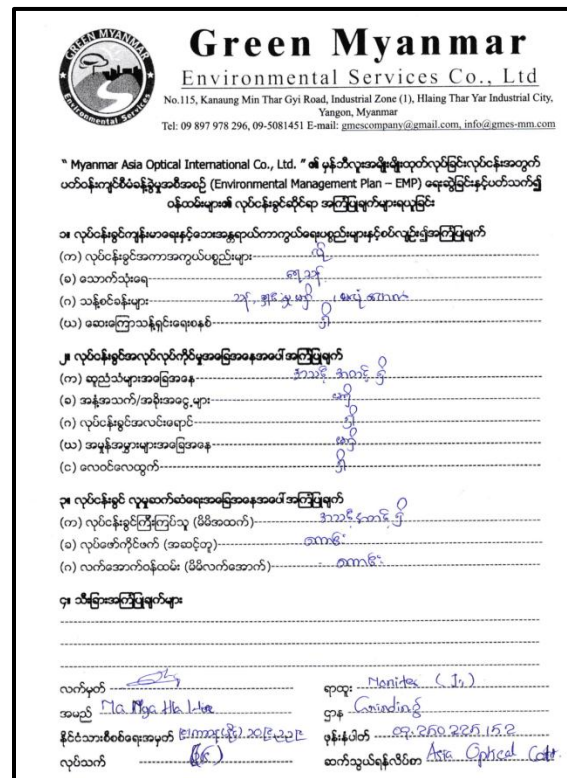 GREEN MYANMAR
Environmental Services
Green Myanmar
Environmental Services Co., Ltd
No.115, Kanaung Min Thar Gyi Road, Industrial Zone (1), Hlaing Thar Yar Industrial City,
Yangon, Myanmar
Tel: 09 897 978 296, 09-5081451 E-mail: gmescompany@gmail.com, info@gmes-mm.com
“ Myanmar Asia Optical International Co., Ltd. ” ၏ မှန်ဘီလူးအမျိုးမျိုးထုတ်လုပ်ခြင်းလုပ်ငန်းအတွက်
ပတ်ဝန်းကျင်စီမံခန့်ခွဲမှုအစီအစဉ် (Environmental Management Plan – EMP) ရေးဆွဲခြင်းနှင့်ပတ်သက်၍
ဝန်ထမ်းများ၏ လုပ်ငန်းခွင်ဆိုင်ရာ အကြံပြုချက်များရယူခြင်း
၁။ လုပ်ငန်းခွင်ကျန်းမာရေးနှင့်ဘေးအန္တရာယ်ကာကွယ်ရေးပစ္စည်းများနှင့်စပ်လျဉ်း၍အကြံပြုချက်
(က) လုပ်ငန်းခွင်အကာအကွယ်ပစ္စည်းများ ရှိ
(ခ) သောက်သုံးရေ ရေသန့်
(ဂ) သန့်စင်ခန်းများ
(ဃ) ဆေးကြောသန့်ရှင်းရေးစနစ် ရှိ
၂။ လုပ်ငန်းခွင်အလုပ်လုပ်ကိုင်မှုအခြေအနေအပေါ်အကြံပြုချက်
(က) ဆူညံသံများအခြေအနေ အသင့်အတင့်ရှိ
(ခ) အနံ့အသက်/အခိုးအငွေ့များ မရှိ
(ဂ) လုပ်ငန်းခွင်အလင်းရောင် ရှိ
(ဃ) အမှုန်အမွှားများအခြေအနေ မရှိ
(င) လေဝင်လေထွက် ရှိ
၃။ လုပ်ငန်းခွင် လူမှုဆက်ဆံရေးအခြေအနေအပေါ်အကြံပြုချက်
(က) လုပ်ငန်းခွင်ကြီးကြပ်သူ (မိမိအထက်) အသင့်အတင့်ရှိ
(ခ) လုပ်ဖော်ကိုင်ဖက် (အဆင့်တူ) ကောင်း
(ဂ) လက်အောက်ဝန်ထမ်း (မိမိလက်အောက်) ကောင်း
၄။ သီးခြားအကြံပြုချက်များ
လက်မှတ်
ရာထူး Monitor
အမည် Ma Nga Hla
ဌာန Grinding
နိုင်ငံသားစိစစ်ရေးအမှတ်
ဖုန်းနံပါတ် 09.250225152
လုပ်သက်
ဆက်သွယ်ရန်လိပ်စာ Asia Optical